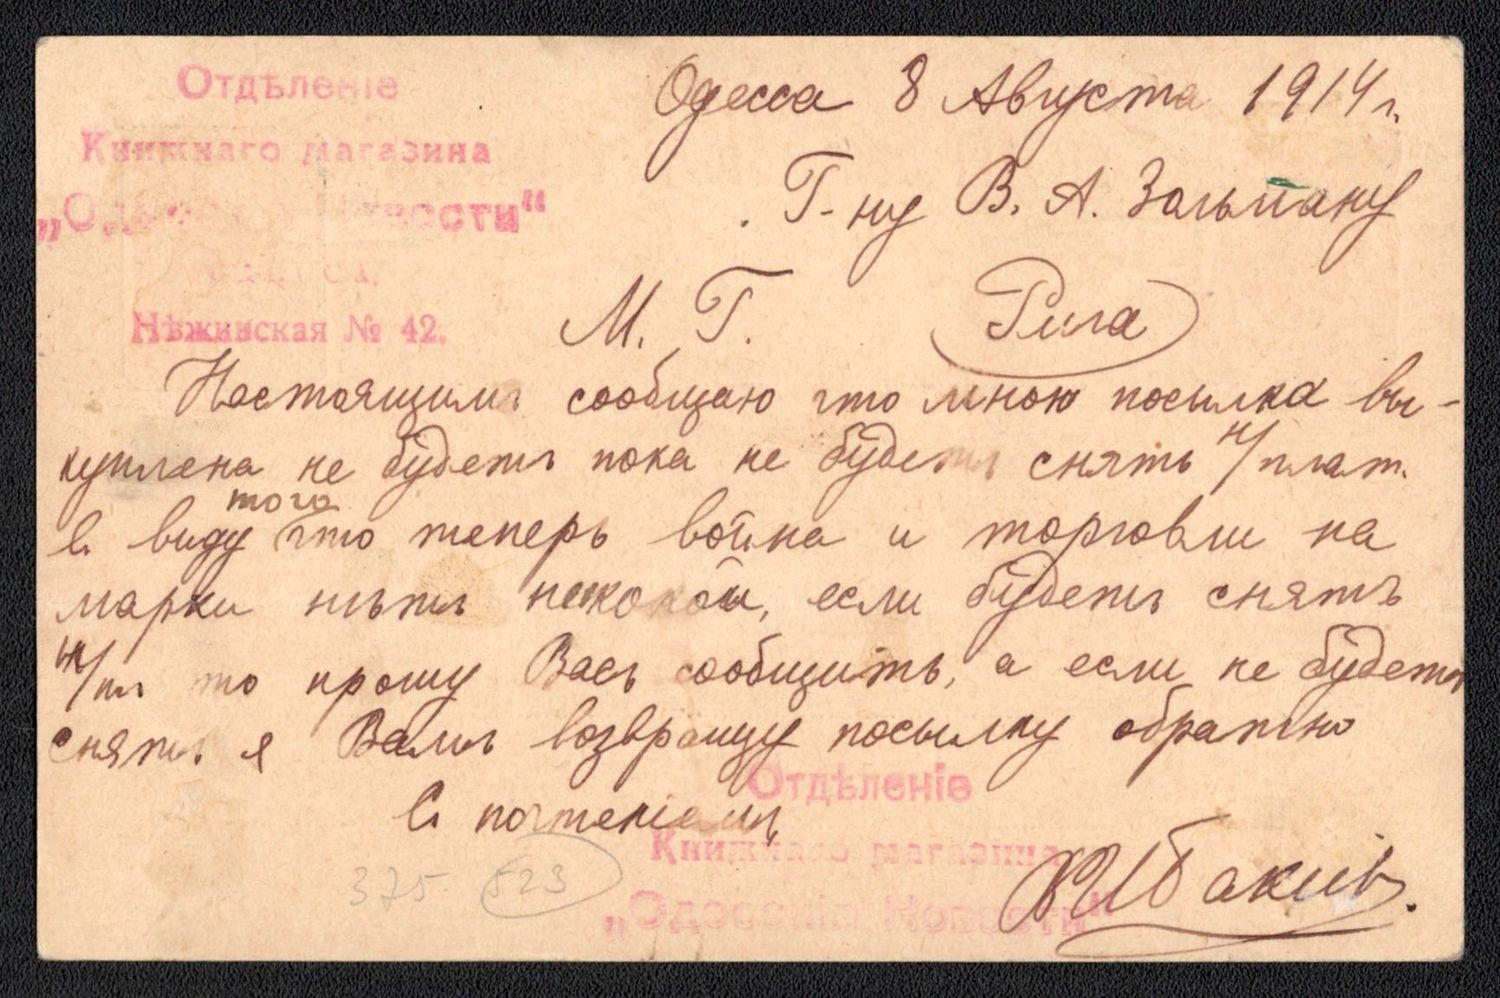 Отдѣленіе
Книжнаго магазина
„Одесскія Новости“
Нѣжинская № 42.
Одесса 8 Августа 1914 г.
Г-ну В. А. Зальману
М. Г. Рига
Настоящимъ сообщаю что мною посылка вы-
куплена не будетъ пока не будетъ снятъ н/плат.
В виду того что теперь война и торговли на
марки нѣтъ некакой, если будетъ снятъ
н/пл то прошу Васъ сообщить, а если не будетъ
снятъ я Вамъ возвращу посылку обратно
С почтеніемъ
375 523
Отдѣленіе
Книжнаго магазина
„Одесскія Новости“